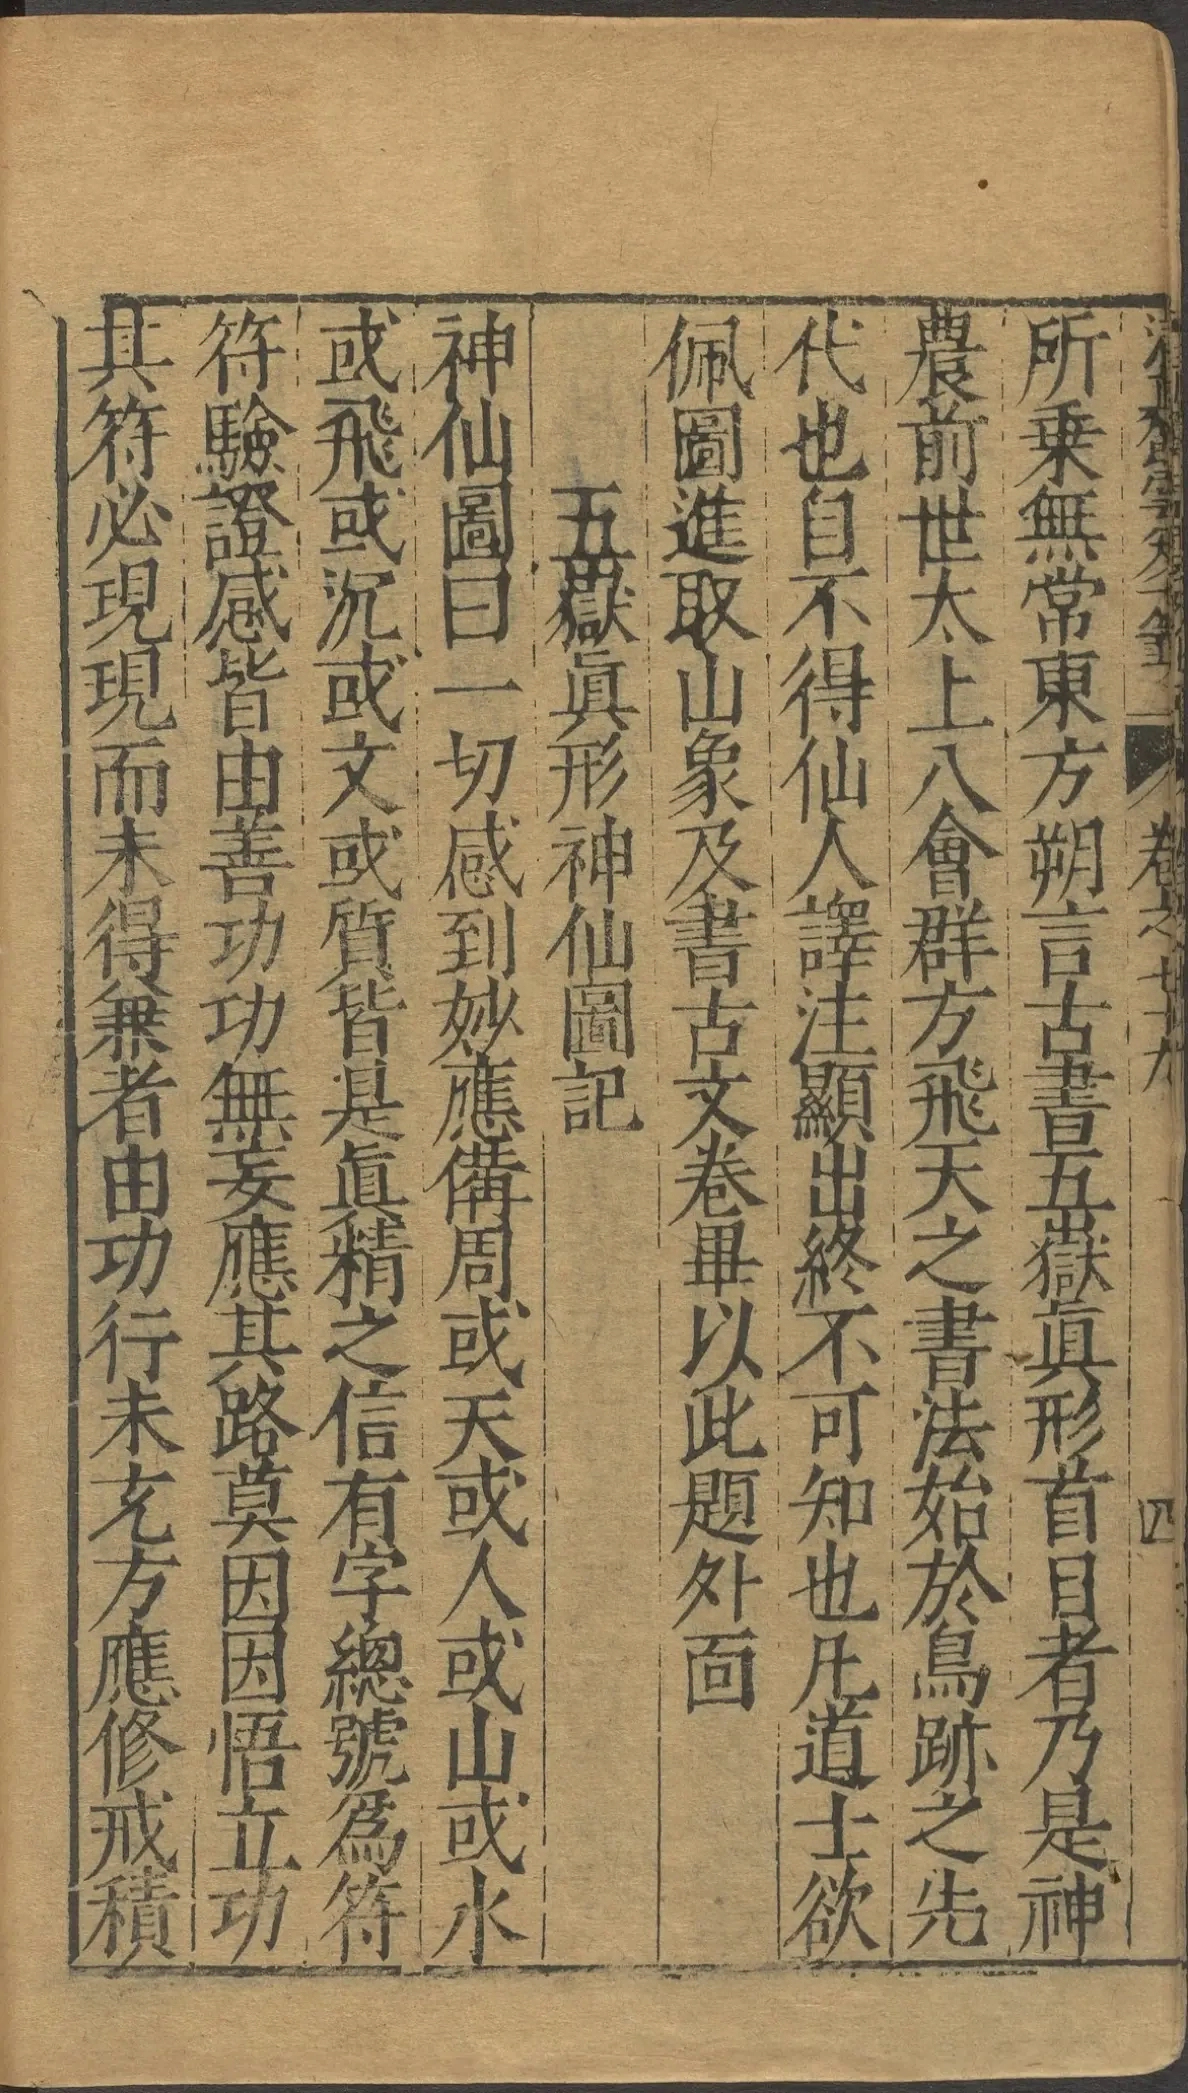 卷之七十九
四
所乗無常東方朔言古書五嶽眞形首目者乃是神
農前世太上八會群方飛天之書法始於鳥跡之先
代也自不得仙人譯注顯出終不可知也凡道士欲
佩圖進取山象及書古文卷畢以此題外面
五嶽眞形神仙圖記
神仙圖曰一切感到妙應備周或天或人或山或水
或飛或沉或文或質皆是眞精之信有字總號爲符
符驗證感皆由善功功無妄應其路莫因因悟立功
其符必現現而未得兼者由功行未充方應修戒積